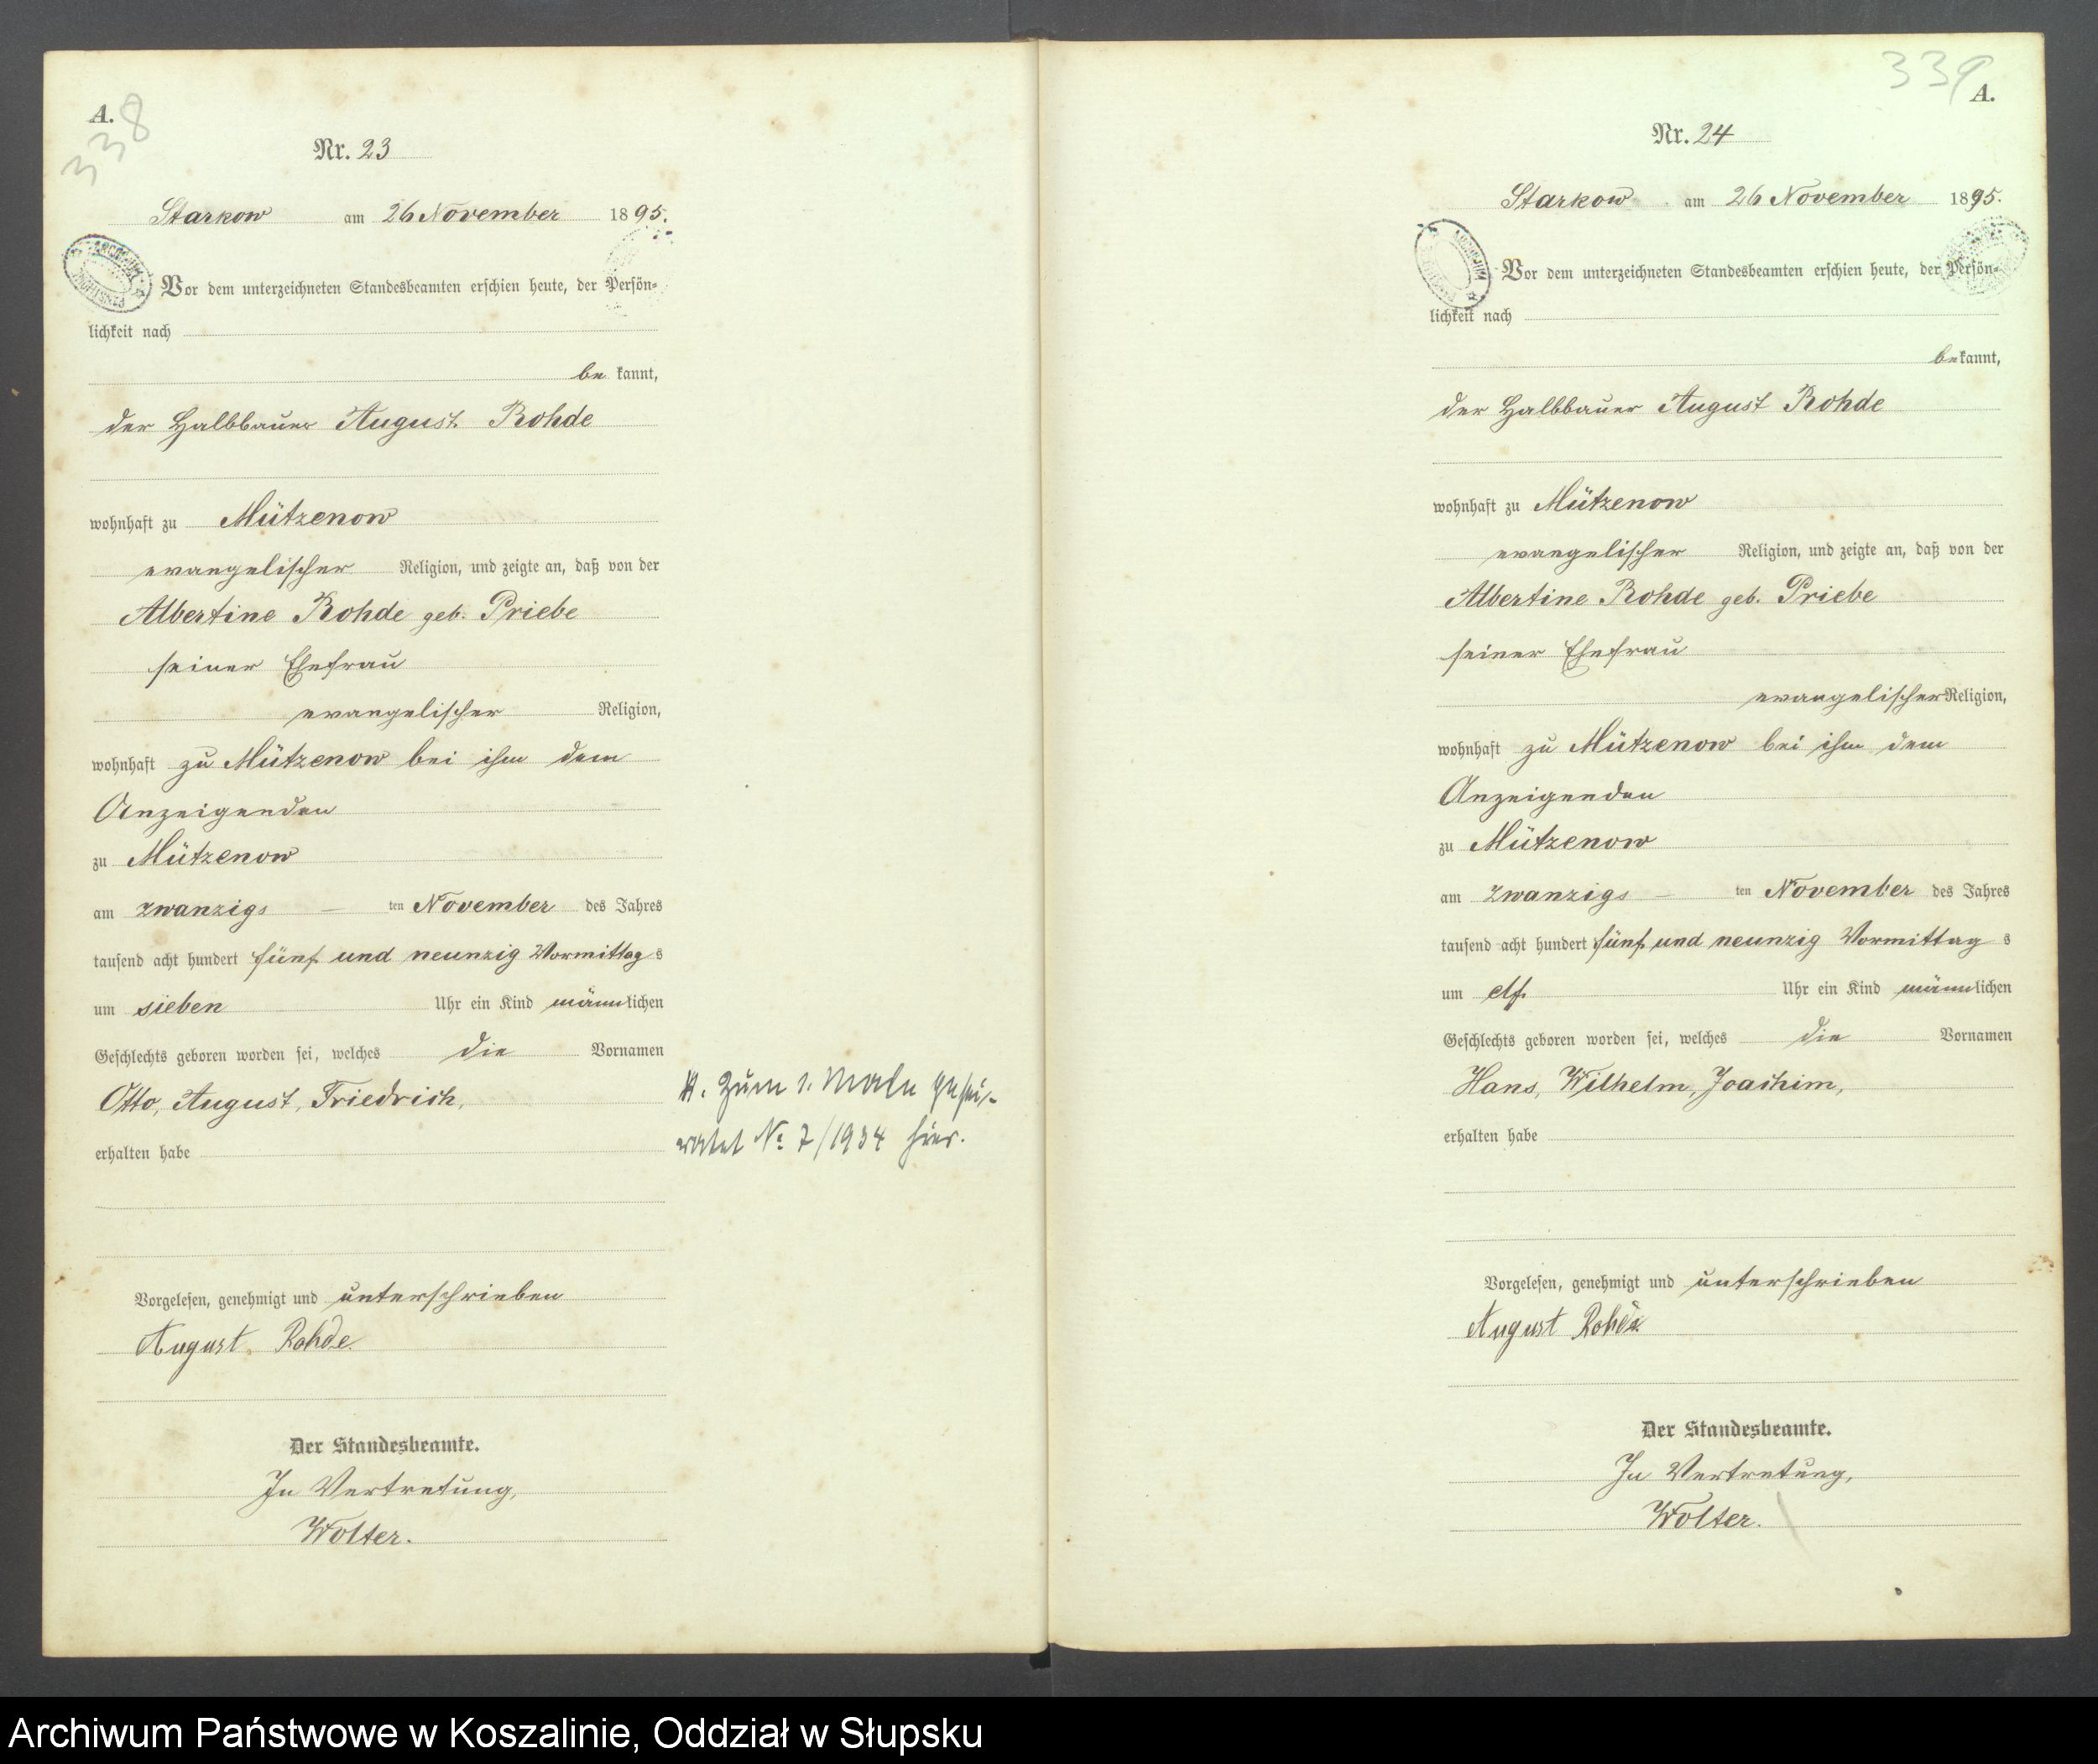 A.
338
Nr. 23
Starkow am 26 November 1895.
Vor dem unterzeichneten Standesbeamten erschien heute, der Persön-
lichkeit nach
be kannt,
der Halbbauer August Rohde
wohnhaft zu Mützenow
evangelischer Religion, und zeigte an, daß von der
Albertine Rohde geb. Priebe
seiner Ehefrau
evangelischer Religion,
wohnhaft zu Mützenow bei ihm dem
Anzeigenden
zu Mützenow
am zwanzigs — ten November des Jahres
tausend acht hundert fünf und neunzig Vormittag s
um sieben Uhr ein Kind männlichen
Geschlechts geboren worden sei, welches die Vornamen
Otto, August, Friedrich,
erhalten habe
Vorgelesen, genehmigt und unterschrieben
August Rohde
Der Standesbeamte.
In Vertretung,
Wolter.
Zum 1. Male gehei-
ratet № 7/1934 hier.
339
A.
Nr. 24
Starkow am 26 November 1895.
Vor dem unterzeichneten Standesbeamten erschien heute, der Persön-
lichkeit nach
bekannt,
der Halbbauer August Rohde
wohnhaft zu Mützenow
evangelischer Religion, und zeigte an, daß von der
Albertine Rohde geb. Priebe
seiner Ehefrau
evangelischer Religion,
wohnhaft zu Mützenow bei ihm dem
Anzeigenden
zu Mützenow
am zwanzigs — ten November des Jahres
tausend acht hundert fünf und neunzig Vormittag s
um elf Uhr ein Kind männlichen
Geschlechts geboren worden sei, welches die Vornamen
Hans, Wilhelm, Joachim,
erhalten habe
Vorgelesen, genehmigt und unterschrieben
August Rohde
Der Standesbeamte.
In Vertretung,
Wolter.
Archiwum Państwowe w Koszalinie, Oddział w Słupsku